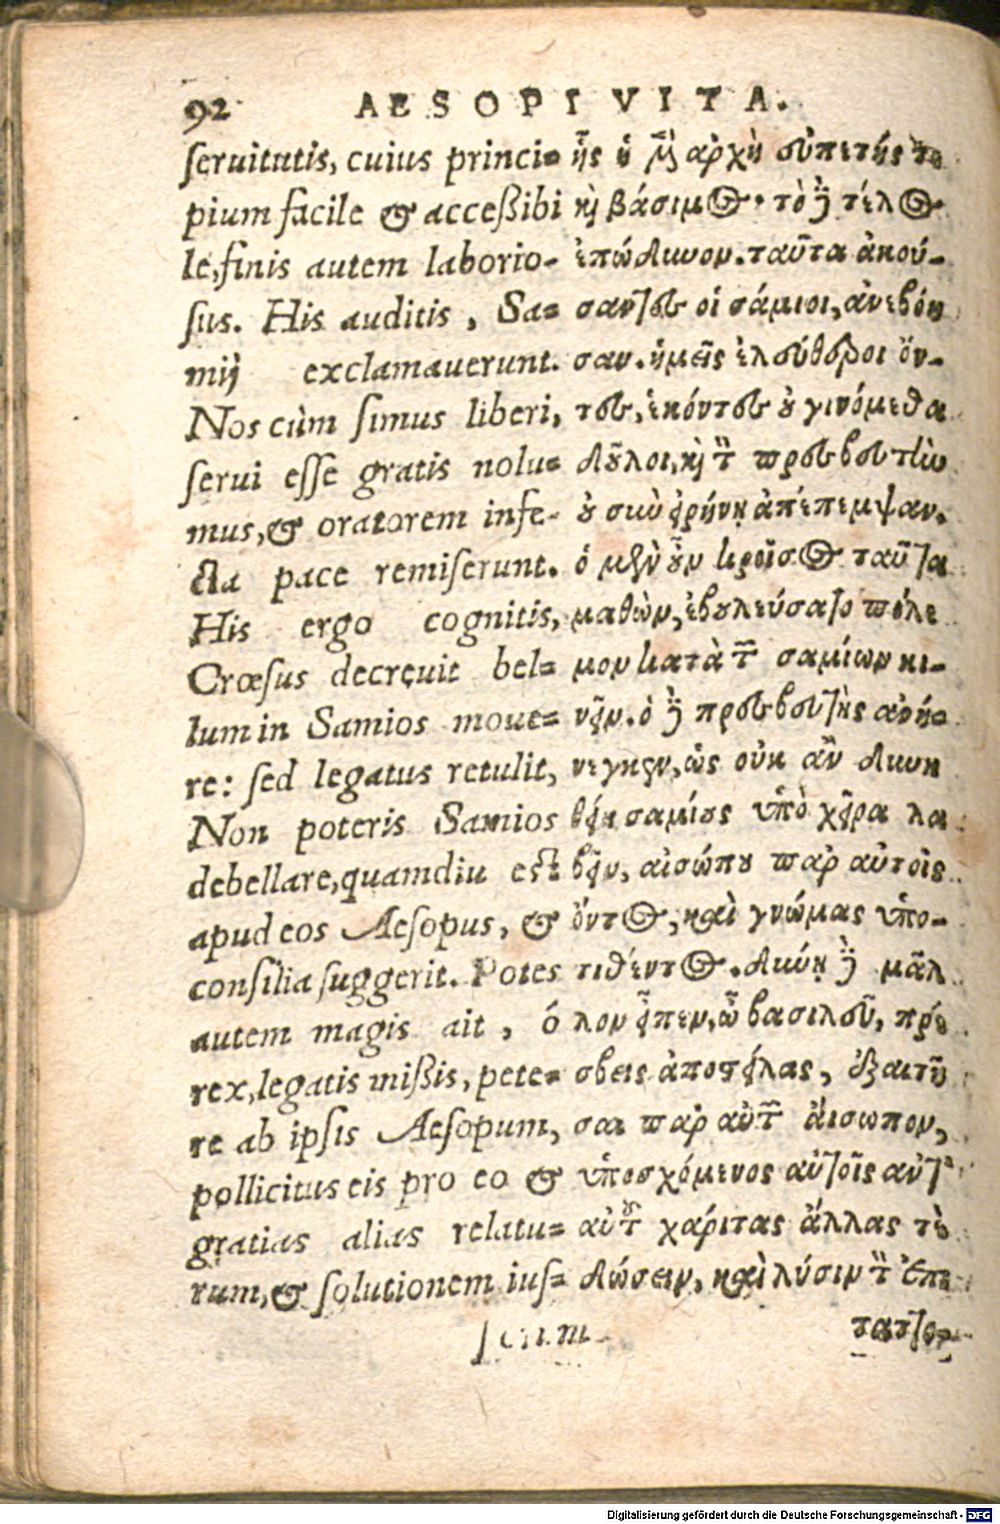 92 AESOPI VITA.
seruitutis, cuius princi=
pium facile & accessibi
le, finis autem laborio-
sus. His auditis, Sa=
mij exclamauerunt.
Nos cùm simus liberi,
serui esse gratis nolu=
mus, & oratorem infe-
cta pace remiserunt.
His ergo cognitis,
Crœsus decreuit bel=
lum in Samios moue=
re: sed legatus retulit,
Non poteris Samios
debellare, quamdiu est
apud eos Aesopus, &
consilia suggerit. Potes
autem magis ait, ó
rex, legatis missis, pete=
re ab ipsis Aesopum,
pollicitus eis pro eo &
gratias alias relatu=
rum, & solutionem ius=
ἧς ἡ μὲν ἀρχὴ εὐπετής τε
καὶ βάσιμος. τὸ δὲ τέλος
ἐπώδυνον. ταῦτα ἀκού-
σαντες οἱ σάμιοι, ἀνεβόη
σαν. ἡμεῖς ἐλεύθεροι ὄν-
τες, ἑκόντες οὐ γινόμεθα
δοῦλοι, καὶ τὸν πρεσβευτὴν
οὐ σὺν εἰρήνῃ ἀπέπεμψαν.
ὁ μὲν οὖν κροῖσος ταῦτα
μαθὼν, ἐβουλεύσατο πόλε
μον κατὰ τῶν σαμίων κι-
νεῖν. ὁ δὲ πρεσβευτὴς ἀνή-
νεγκεν, ὡς οὐκ ἂν δυνη
θείη σαμίους ὑπὸ χεῖρα λα
βεῖν, αἰσώπου παρ αὐτοῖς
ὄντος, καὶ γνώμας ὑπο-
τιθέντος. δύνῃ δὲ μᾶλ
λον εἶπεν, ὦ βασιλεῦ, πρέ
σβεις ἀποστείλας, ἐξαιτῆ
σαι παρ αὐτῶν αἴσωπον,
ὑποσχόμενος αὐτοῖς ἀντ'
αὐτοῦ χάριτας ἄλλας τὲ
δώσειν, καὶ λύσιν τῶν ἐπι
Digitalisierung gefördert durch die Deutsche Forschungsgemeinschaft - DFG